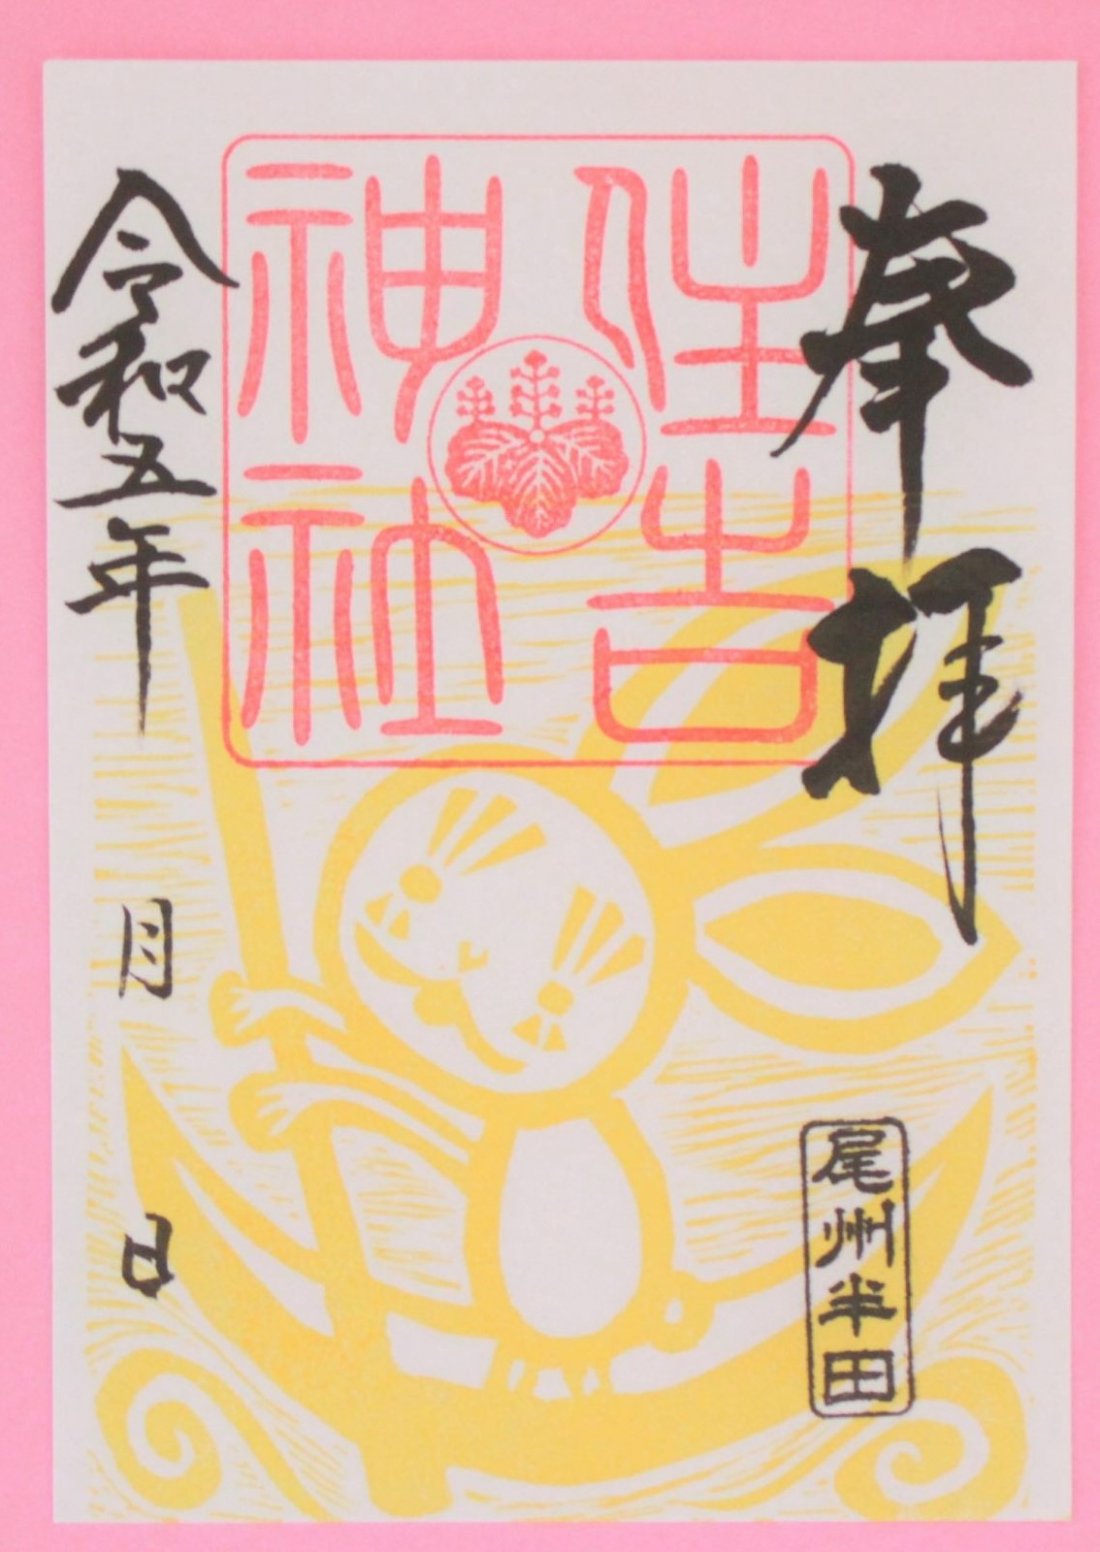 奉拝
住吉
神社
尾州半田
令和五年
月
日